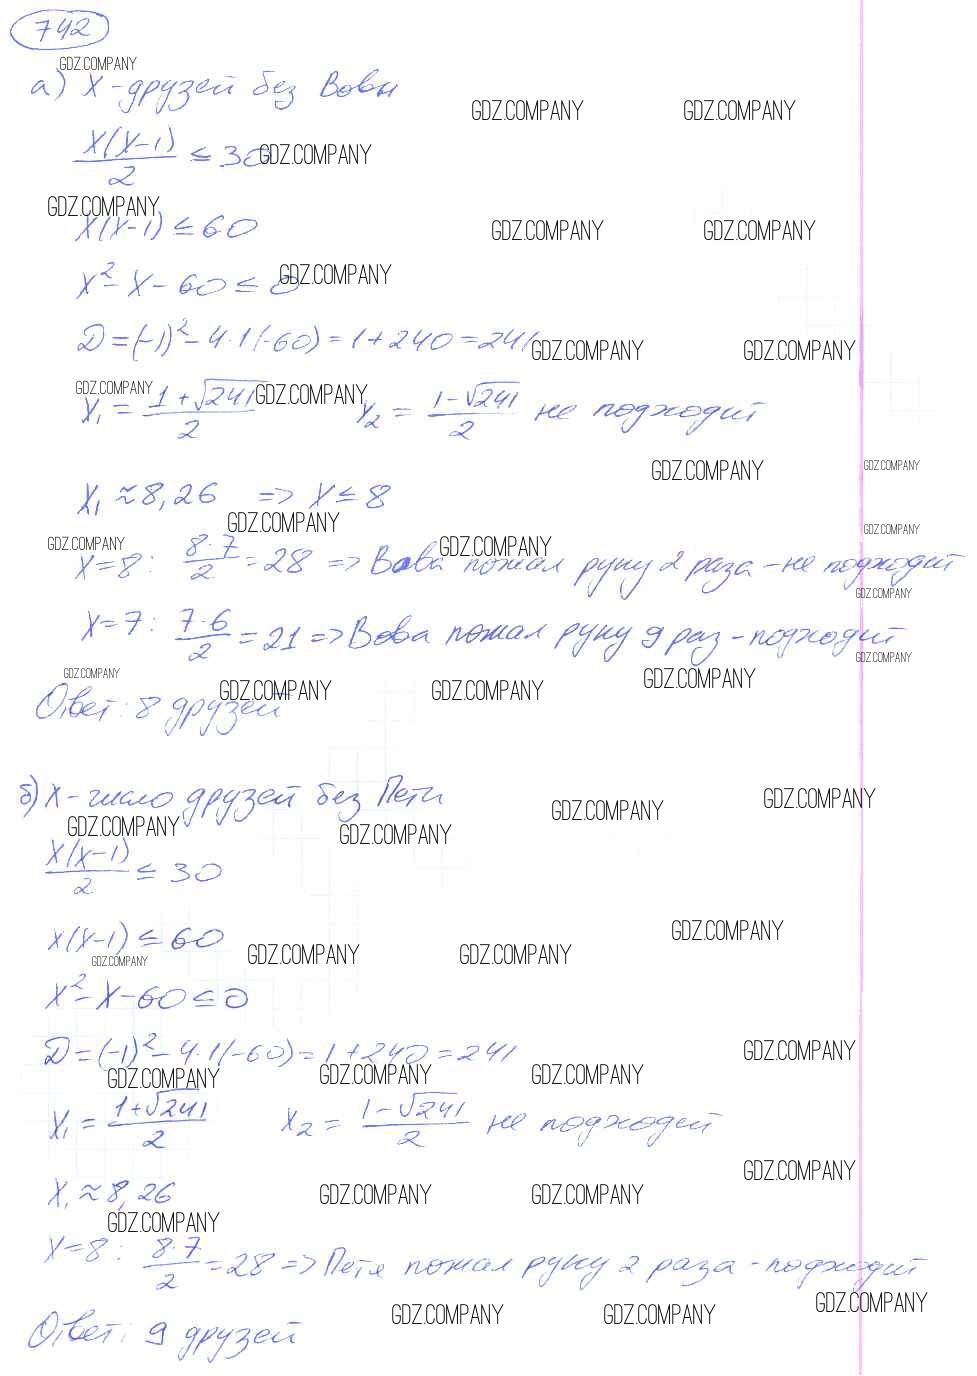 742
GDZ.COMPANY
а) X - друзей без Вовы
GDZ.COMPANY GDZ.COMPANY
X(X-1)/2 ≤ 30 GDZ.COMPANY
GDZ.COMPANY
X(X-1) ≤ 60 GDZ.COMPANY GDZ.COMPANY
X² - X - 60 ≤ 0 GDZ.COMPANY
D = (-1)² - 4·1(-60) = 1 + 240 = 241 GDZ.COMPANY GDZ.COMPANY
GDZ.COMPANY GDZ.COMPANY
X₁ = (1+√241)/2 X₂ = (1-√241)/2 не подходит
GDZ.COMPANY GDZ.COMPANY
X₁ ≈ 8,26 => X ≤ 8
GDZ.COMPANY GDZ.COMPANY
GDZ.COMPANY GDZ.COMPANY
X=8: 8·7/2 = 28 => Вова пожал руку 2 раза - не подходит
GDZ.COMPANY
X=7: 7·6/2 = 21 => Вова пожал руку 9 раз - подходит
GDZ.COMPANY
GDZ.COMPANY GDZ.COMPANY GDZ.COMPANY GDZ.COMPANY
Ответ: 8 друзей
б) X - число друзей без Пети
GDZ.COMPANY GDZ.COMPANY
GDZ.COMPANY GDZ.COMPANY
X(X-1)/2 ≤ 30
X(X-1) ≤ 60 GDZ.COMPANY
GDZ.COMPANY GDZ.COMPANY GDZ.COMPANY
X² - X - 60 ≤ 0
D = (-1)² - 4·1(-60) = 1 + 240 = 241 GDZ.COMPANY
GDZ.COMPANY GDZ.COMPANY GDZ.COMPANY
X₁ = (1+√241)/2 X₂ = (1-√241)/2 не подходит
GDZ.COMPANY
X₁ ≈ 8,26 GDZ.COMPANY GDZ.COMPANY
GDZ.COMPANY
X=8: 8·7/2 = 28 => Петя пожал руку 2 раза - подходит
GDZ.COMPANY GDZ.COMPANY GDZ.COMPANY
Ответ: 9 друзей